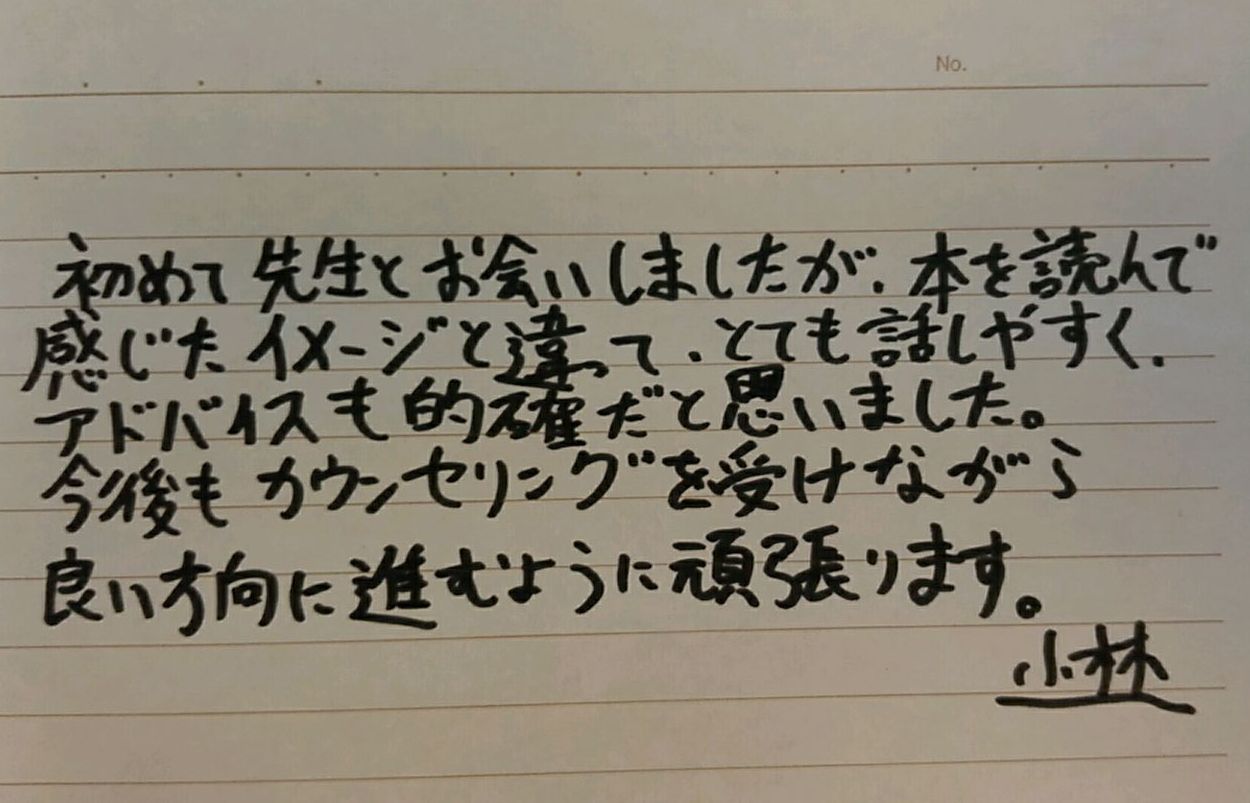 No.
初めて先生とお会いしましたが、本を読んで
感じたイメージと違って、とても話しやすく、
アドバイスも的確だと思いました。
今後もカウンセリングを受けながら
良い方向に進むように頑張ります。
小林